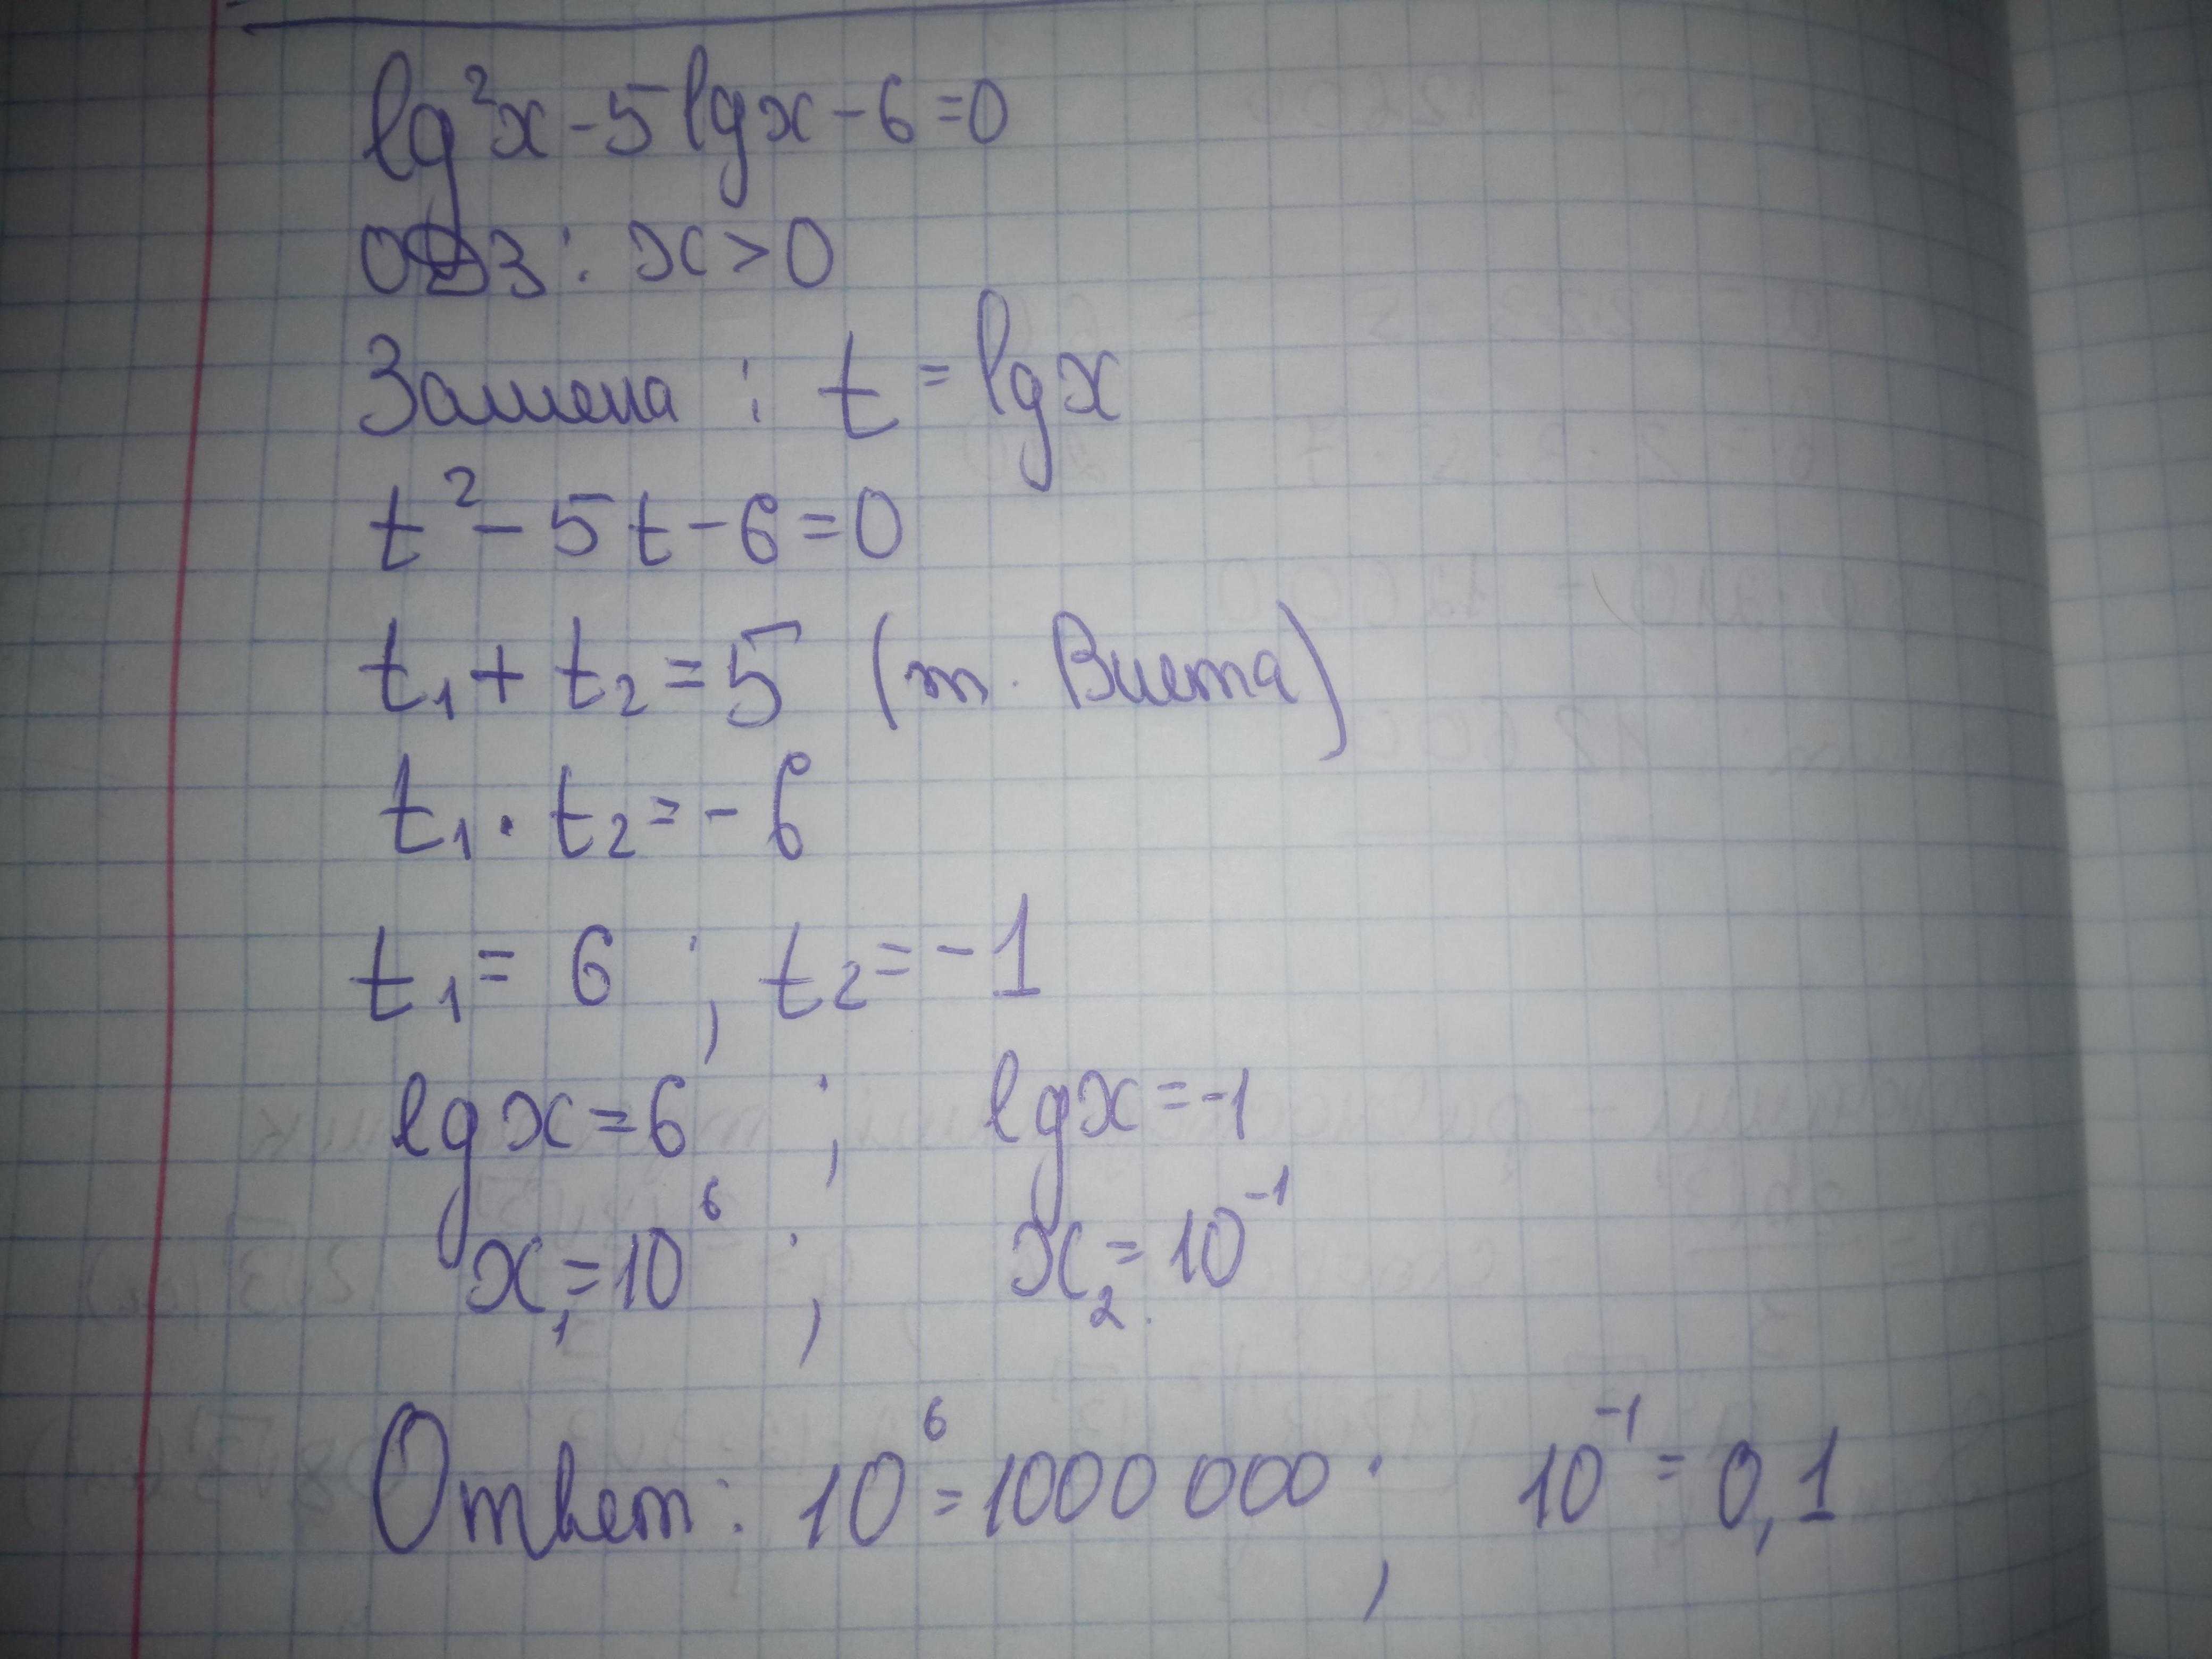 lg²x - 5lgx - 6 = 0
ОДЗ: x > 0
Замена: t = lgx
t² - 5t - 6 = 0
t₁ + t₂ = 5 (т. Виета)
t₁ · t₂ = -6
t₁ = 6 ; t₂ = -1
lgx = 6 ; lgx = -1
x₁ = 10⁶ ; x₂ = 10⁻¹
Ответ: 10⁶ = 1000 000 ; 10⁻¹ = 0,1